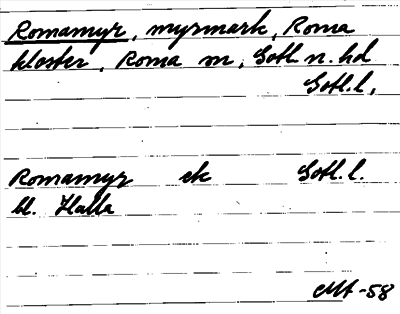 Romamyr, myrmark, Roma
kloster, Roma sn, Gotl. n. hd
Gotl. l.
Romamyr ek Gotl. l.
bl. Halla
-58